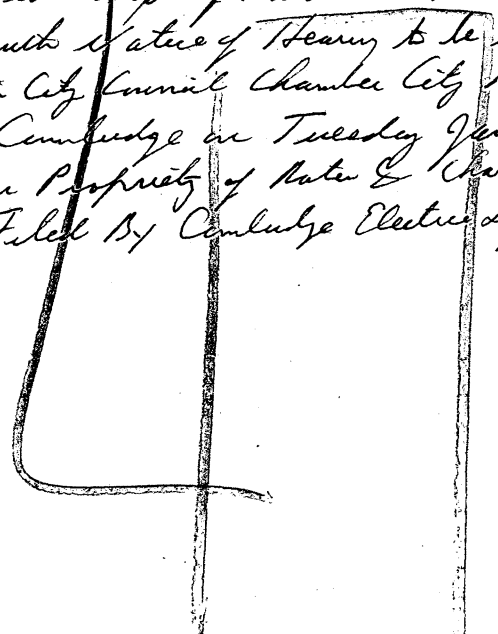 with Notice of Hearing to be
City Council Chamber City
Cambridge on Tuesday Jan
Propriety of Rates & Cha
Filed By Cambridge Electric